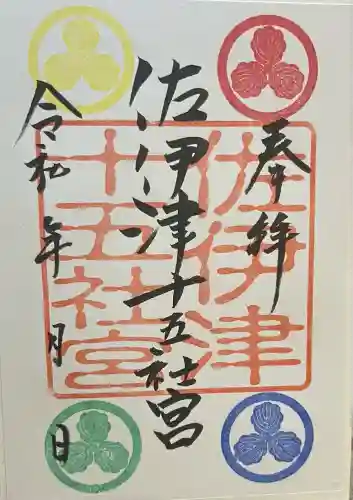 奉拝
佐伊津十五社宮
令和 年 月 日
佐伊津
十五社宮